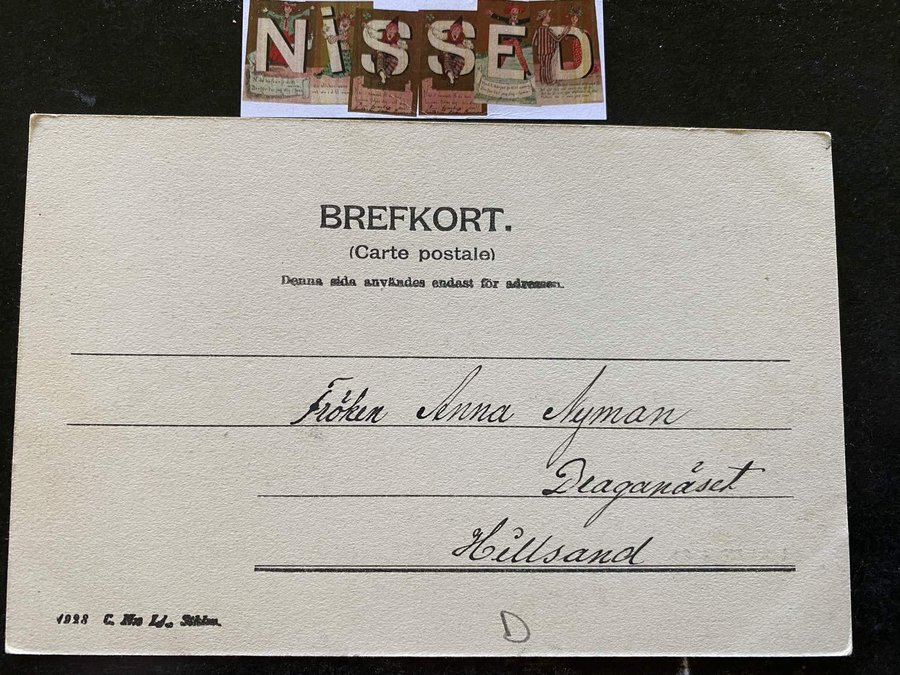 NiSSED
BREFKORT.
(Carte postale)
Denna sida användes endast för adressen.
Fröken Anna Nyman
Draganäset
Hillsand
1928 C. Ns Lj., Sthlm.
D